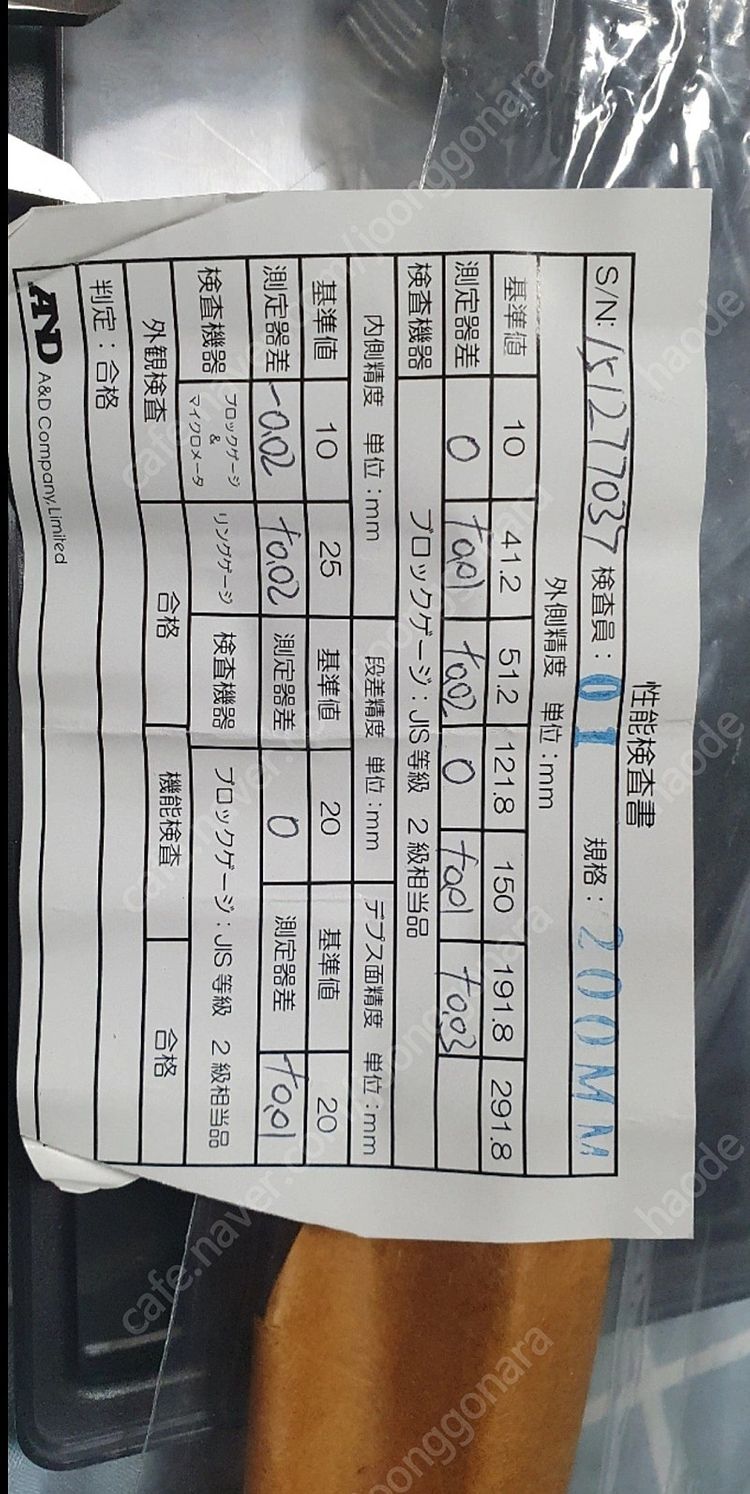 性能検査書
S/N: 151277037 検査員: 01 規格: 200MM
外側精度 単位:mm
基準値 10 41.2 51.2 121.8 150 191.8 291.8
測定器差 0 +0.01 +0.02 0 +0.01 +0.03
検査機器 ブロックゲージ:JIS等級 2級相当品
内側精度 単位:mm 段差精度 単位:mm デプス面精度 単位:mm
基準値 10 25 基準値 20 基準値 20
測定器差 -0.02 +0.02 測定器差 0 測定器差 +0.01
検査機器 ブロックゲージ & マイクロメータ リングゲージ 検査機器 ブロックゲージ:JIS等級 2級相当品
外観検査 合格 機能検査 合格
判定:合格
AND A&D Company,Limited
cafe.naver.com/joonggonara
haode
haode
haode
cafe.naver.com/joonggonara
cafe.naver.com/joonggonara